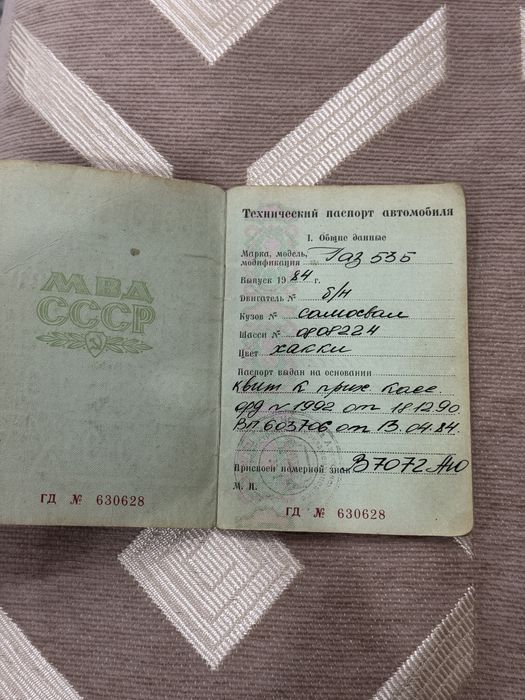 МВД
СССР
ГД № 630628
Технический паспорт автомобиля
I. Общие данные
Марка, модель,
модификация Газ 53Б
Выпуск 1984 г.
Двигатель № б/н
Кузов № самосвал
Шасси № 0808224
Цвет хакки
Паспорт выдан на основании
квит к прих касс
орд № 1992 от 18.12.90.
ВП 603706 от 13.04.84.
Присвоен номерной знак В7072АЮ
М. П.
ГД № 630628